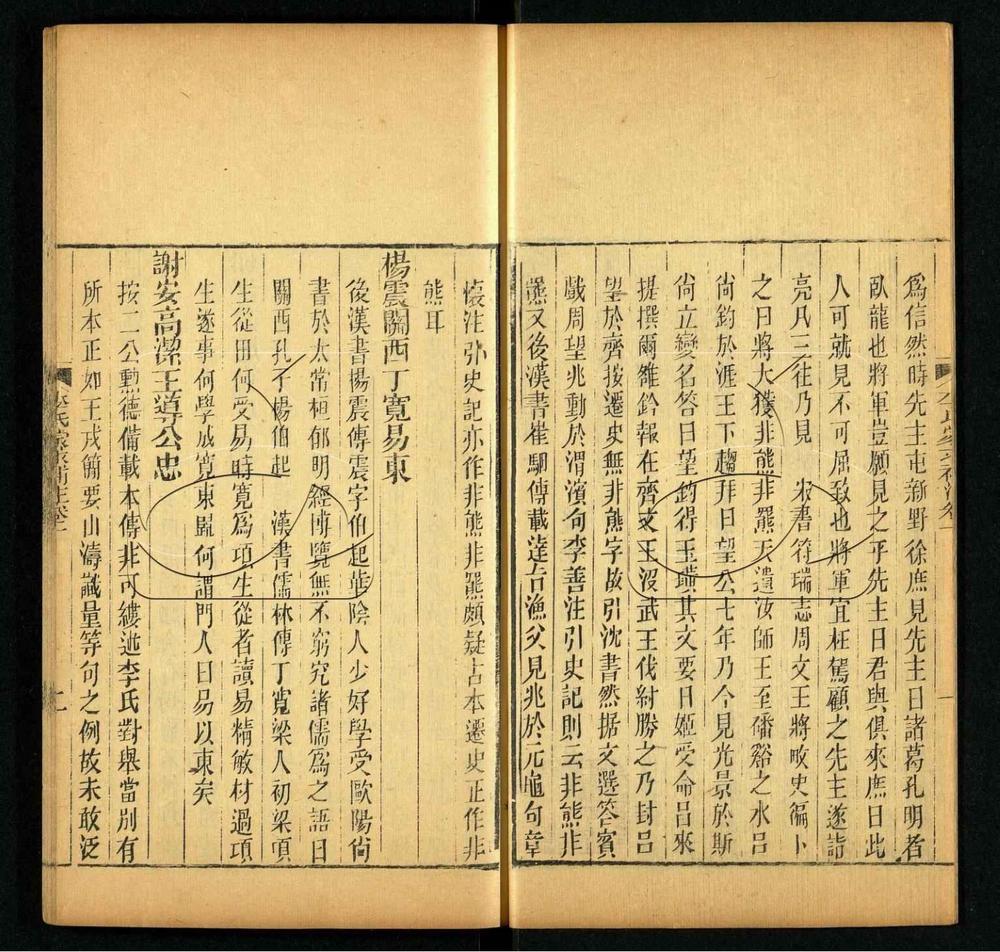 為信然時先主屯新野徐庶見先主曰諸葛孔明者
臥龍也將軍豈願見之乎先主曰君與俱來庶曰此
人可就見不可屈致也將軍宜枉駕顧之先主遂詣
亮凡三往乃見 宋書符瑞志周文王將畋史徧卜
之曰將大獲非熊非羆天遣汝師王至磻谿之水呂
尚釣於涯王下趨拜曰望公七年乃今見光景於斯
尚立變名答曰望釣得玉璜其文要曰姬受命呂來
提撰爾雒鈐報在齊文王沒武王伐紂勝之乃封呂
望於齊按遷史無非熊字故引沈書然据文選答賓
戲周望兆動於渭濱句李善注引史記則云非熊非
羆又後漢書崔駰傳載達吉漁父見兆於元龜句章
懷注引史記亦作非熊非羆頗疑古本遷史正作非
熊耳
楊震關西丁寬易東
後漢書楊震傳震字伯起華陰人少好學受歐陽尚
書於太常桓郁明經博覽無不窮究諸儒為之語曰
關西孔子楊伯起 漢書儒林傳丁寬梁人初梁項
生從田何受易時寬為項生從者讀易精敏材過項
生遂事何學成寬東歸何謂門人曰易以東矣
謝安高潔王導公忠
按二公勳德備載本傳非可縷述李氏對舉當別有
所本正如王戎簡要山濤識量等句之例故未敢泛